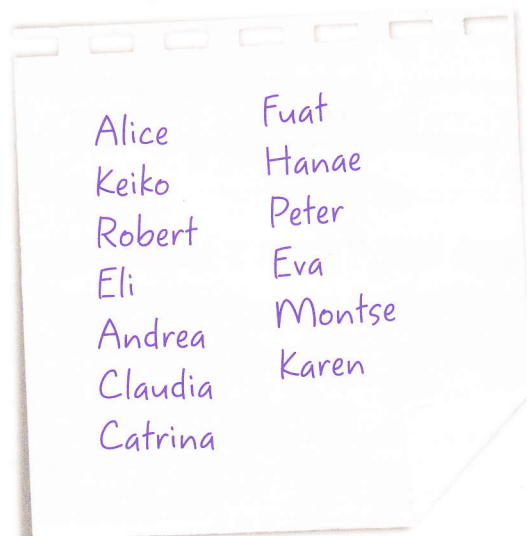 Alice
Keiko
Robert
Eli
Andrea
Claudia
Catrina
Fuat
Hanae
Peter
Eva
Montse
Karen